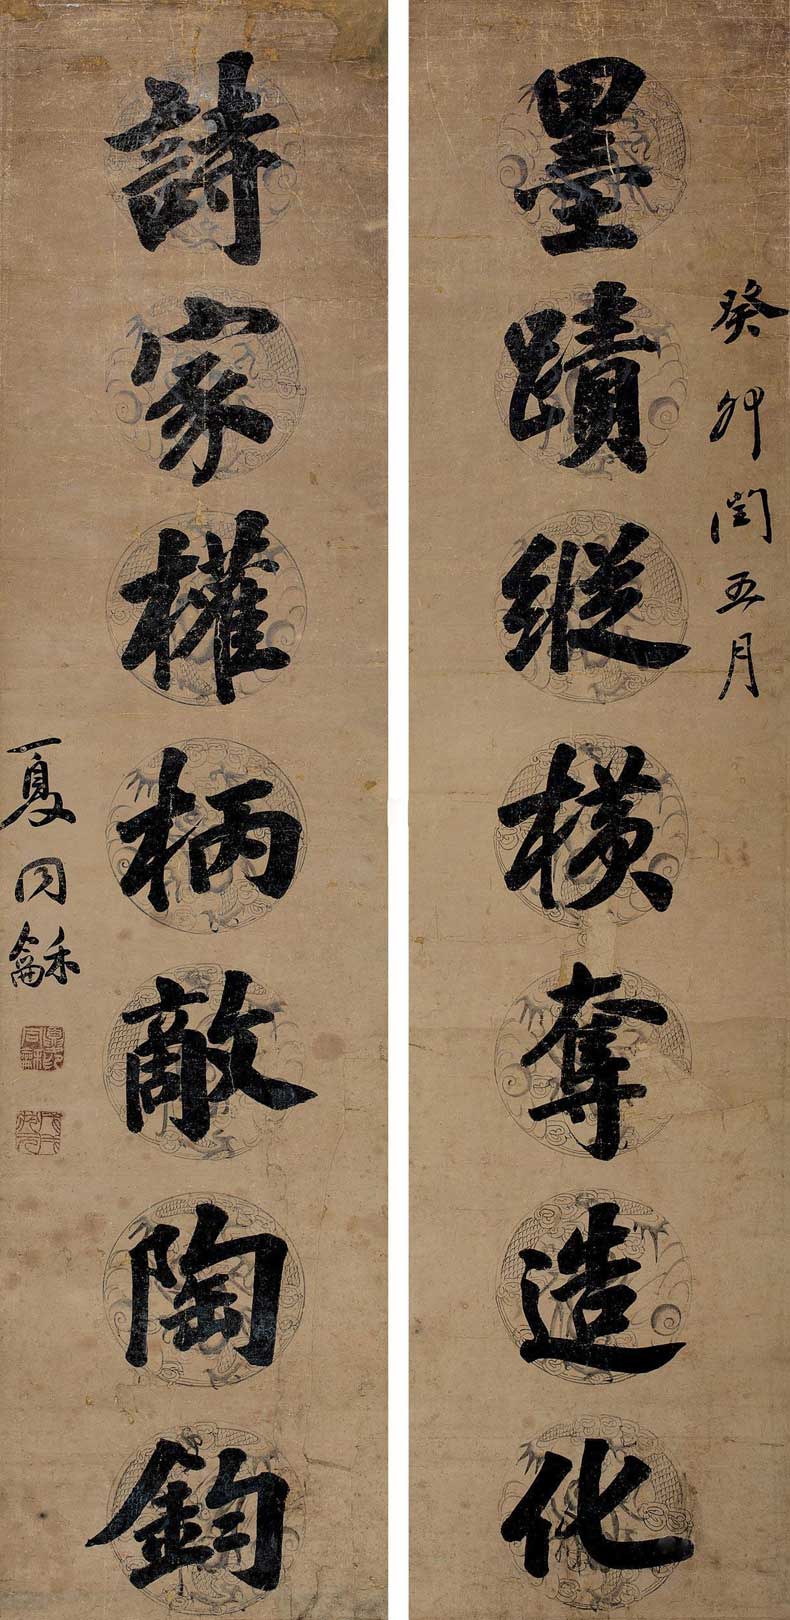 癸卯閏五月
墨蹟縱橫奪造化
詩家權柄敵陶鈞
夏同龢